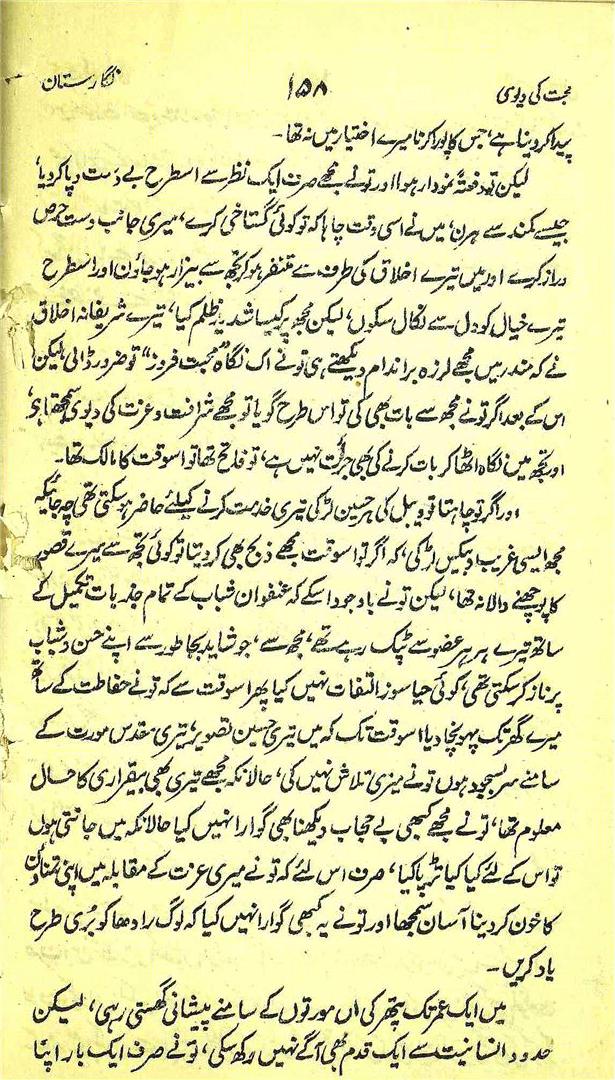 محبت کی دیوی ۱۵۸ نگارستان
پیدا کر دینا ہے، جس کا پورا کرنا میرے اختیار میں نہ تھا۔
لیکن تو دفعتہً نمودار ہوا اور تونے مجھے صرف ایک نظر سے اسطرح بے دست و پا کر دیا،
جیسے کمند سے ہرن، میں نے اسی وقت چاہا کہ تو کوئی گستاخی کرے، میری جانب دست حرص
دراز کرے اور میں تیرے اخلاق کی طرف سے متنفر ہو کر تجھ سے بیزار ہو جاؤں اور اسطرح
تیرے خیال کو دل سے نکال سکوں، لیکن مجھ پر کیسا شدید ظلم کیا، تیرے شریفانہ اخلاق
نے کہ مندر میں مجھے لرزہ براندام دیکھتے ہی تونے اک نگاہ "محبت فروز" تو ضرور ڈالی لیکن
اس کے بعد اگر تونے مجھ سے بات بھی کی تو اس طرح گویا تو مجھے شرافت و عزت کی دیوی سمجھتا ہی،
اور تجھ میں نگاہ اٹھا کر بات کرنے کی بھی جرأت نہیں ہے، تو فاتح تھا تو اسوقت کا مالک تھا۔
اور اگر تو چاہتا تو دیبل کی ہر حسین لڑکی تیری خدمت کرنے کیلئے حاضر ہو سکتی تھی چہ جائیکہ
مجھ ایسی غریب و بیکس لڑکی، کہ اگر تو اسوقت مجھے ذبح بھی کر دیتا تو کوئی تجھ سے میرے قصور
کا پوچھنے والا نہ تھا، لیکن تونے باوجود اسکے کہ عنفوان شباب کے تمام جذبات تکمیل کے
ساتھ تیرے ہر ہر عضو سے ٹپک رہے تھے، مجھ سے، جو شاید بجا طور سے اپنے حسن و شباب
پر ناز کر سکتی تھی، کوئی حیا سوز التفات نہیں کیا پھر اسوقت سے کہ تونے حفاظت کے ساتھ
میرے گھر تک پہونچا دیا اسوقت تک کہ میں تیری حسین تصویر، تیری مقدس مورت کے
سامنے سر بسجود ہوں تونے میری تلاش نہیں کی، حالانکہ مجھے تیری بھی بیقراری کا حال
معلوم تھا، تونے مجھے کبھی بے حجاب دیکھنا بھی گوارا نہیں کیا حالانکہ میں جانتی ہوں
تو اس کے لئے کیا کیا تڑپا کیا، صرف اس لئے کہ تونے میری عزت کے مقابلہ میں اپنی تمناؤں
کا خون کر دینا آسان سمجھا اور تونے یہ کبھی گوارا نہیں کیا کہ لوگ رادھا کو بُری طرح
یاد کریں۔
میں ایک عمر تک پتھر کی اں مورتوں کے سامنے پیشانی گھستی رہی، لیکن
حدود انسانیت سے ایک قدم بھی آگے نہیں رکھ سکی، تونے صرف ایک بار اپنا